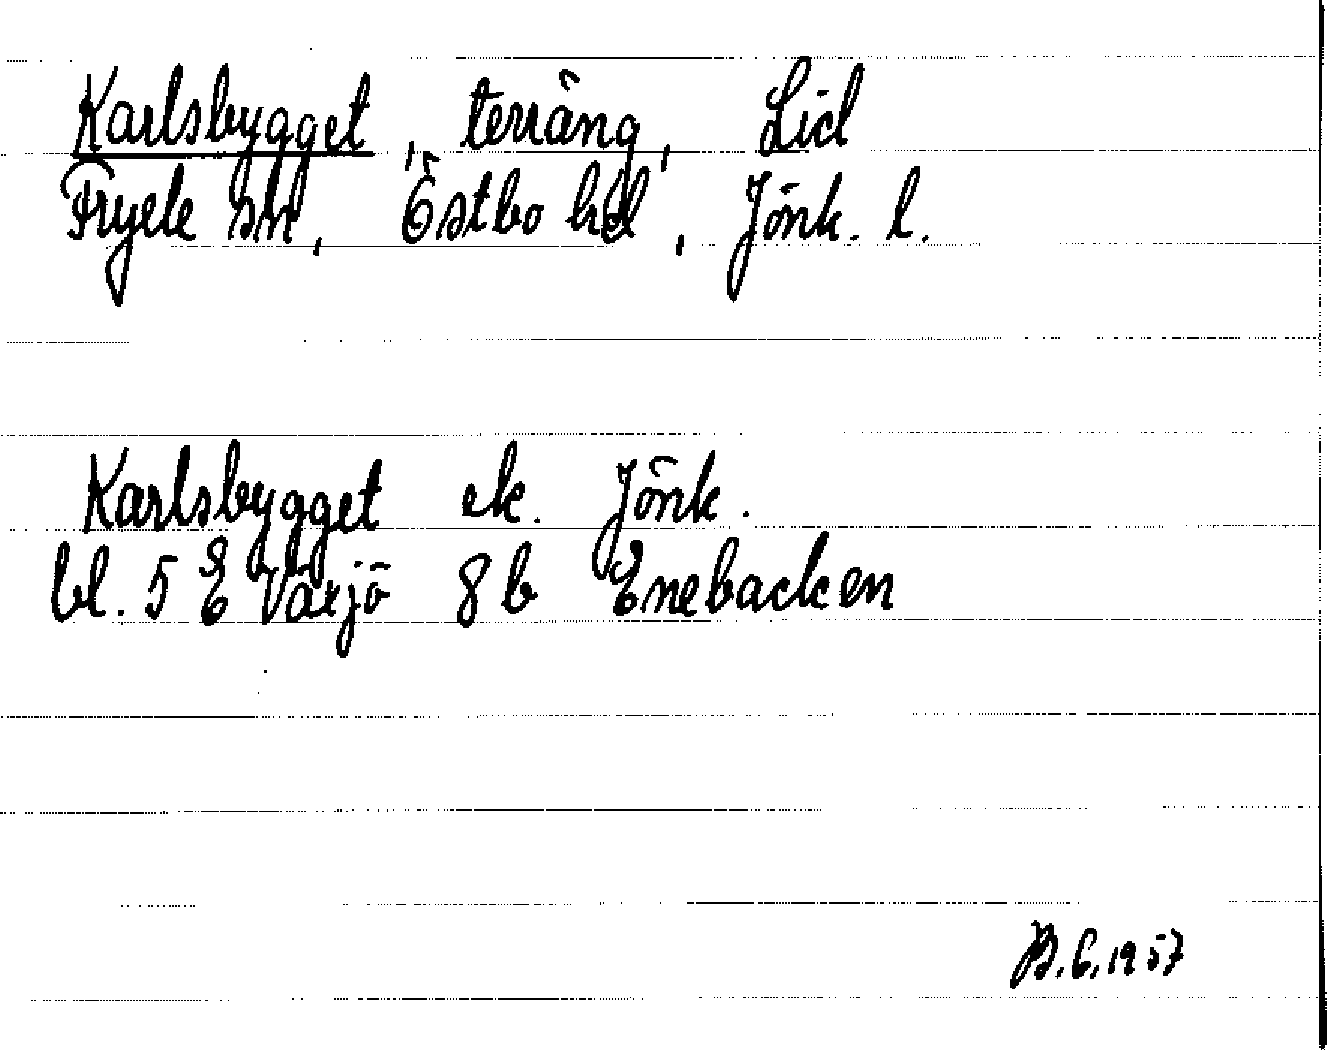 Karlsbygget, terräng, Lid
Fryele sn, Östbo hd, Jönk. l.
Karlsbygget ek. Jönk.
bl. 5 E Växjö 8 b Enebacken
B. G. 1957